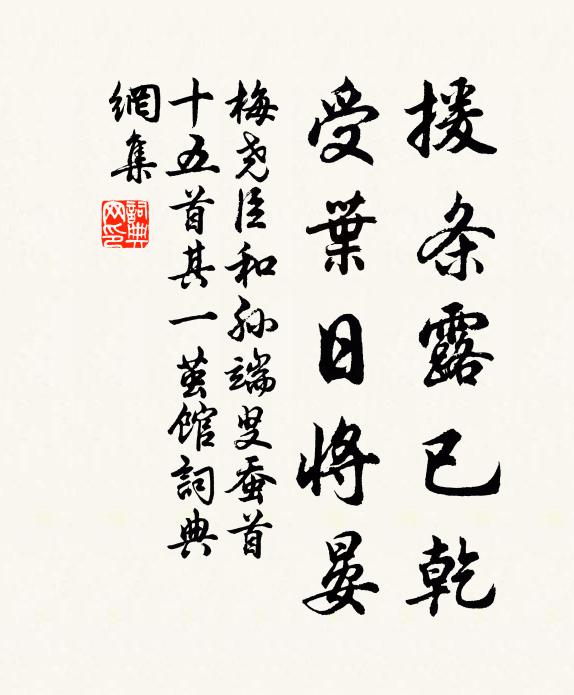 援条露已乾
受葉日将晏
梅尭臣和孙端叟蚕首
十五首其一茧馆詞典
網集
詞典網印